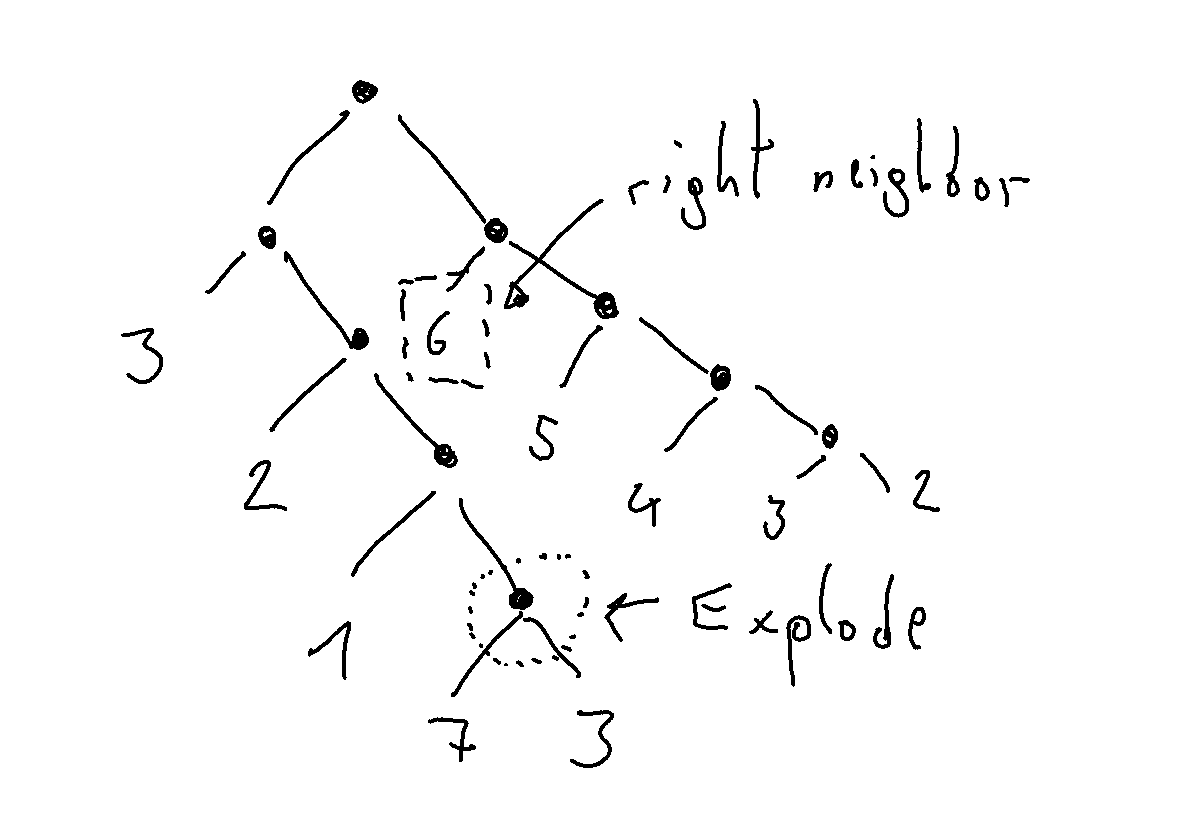 right neighbor
6
3
5
2
4
3
2
1
Explode
7
3